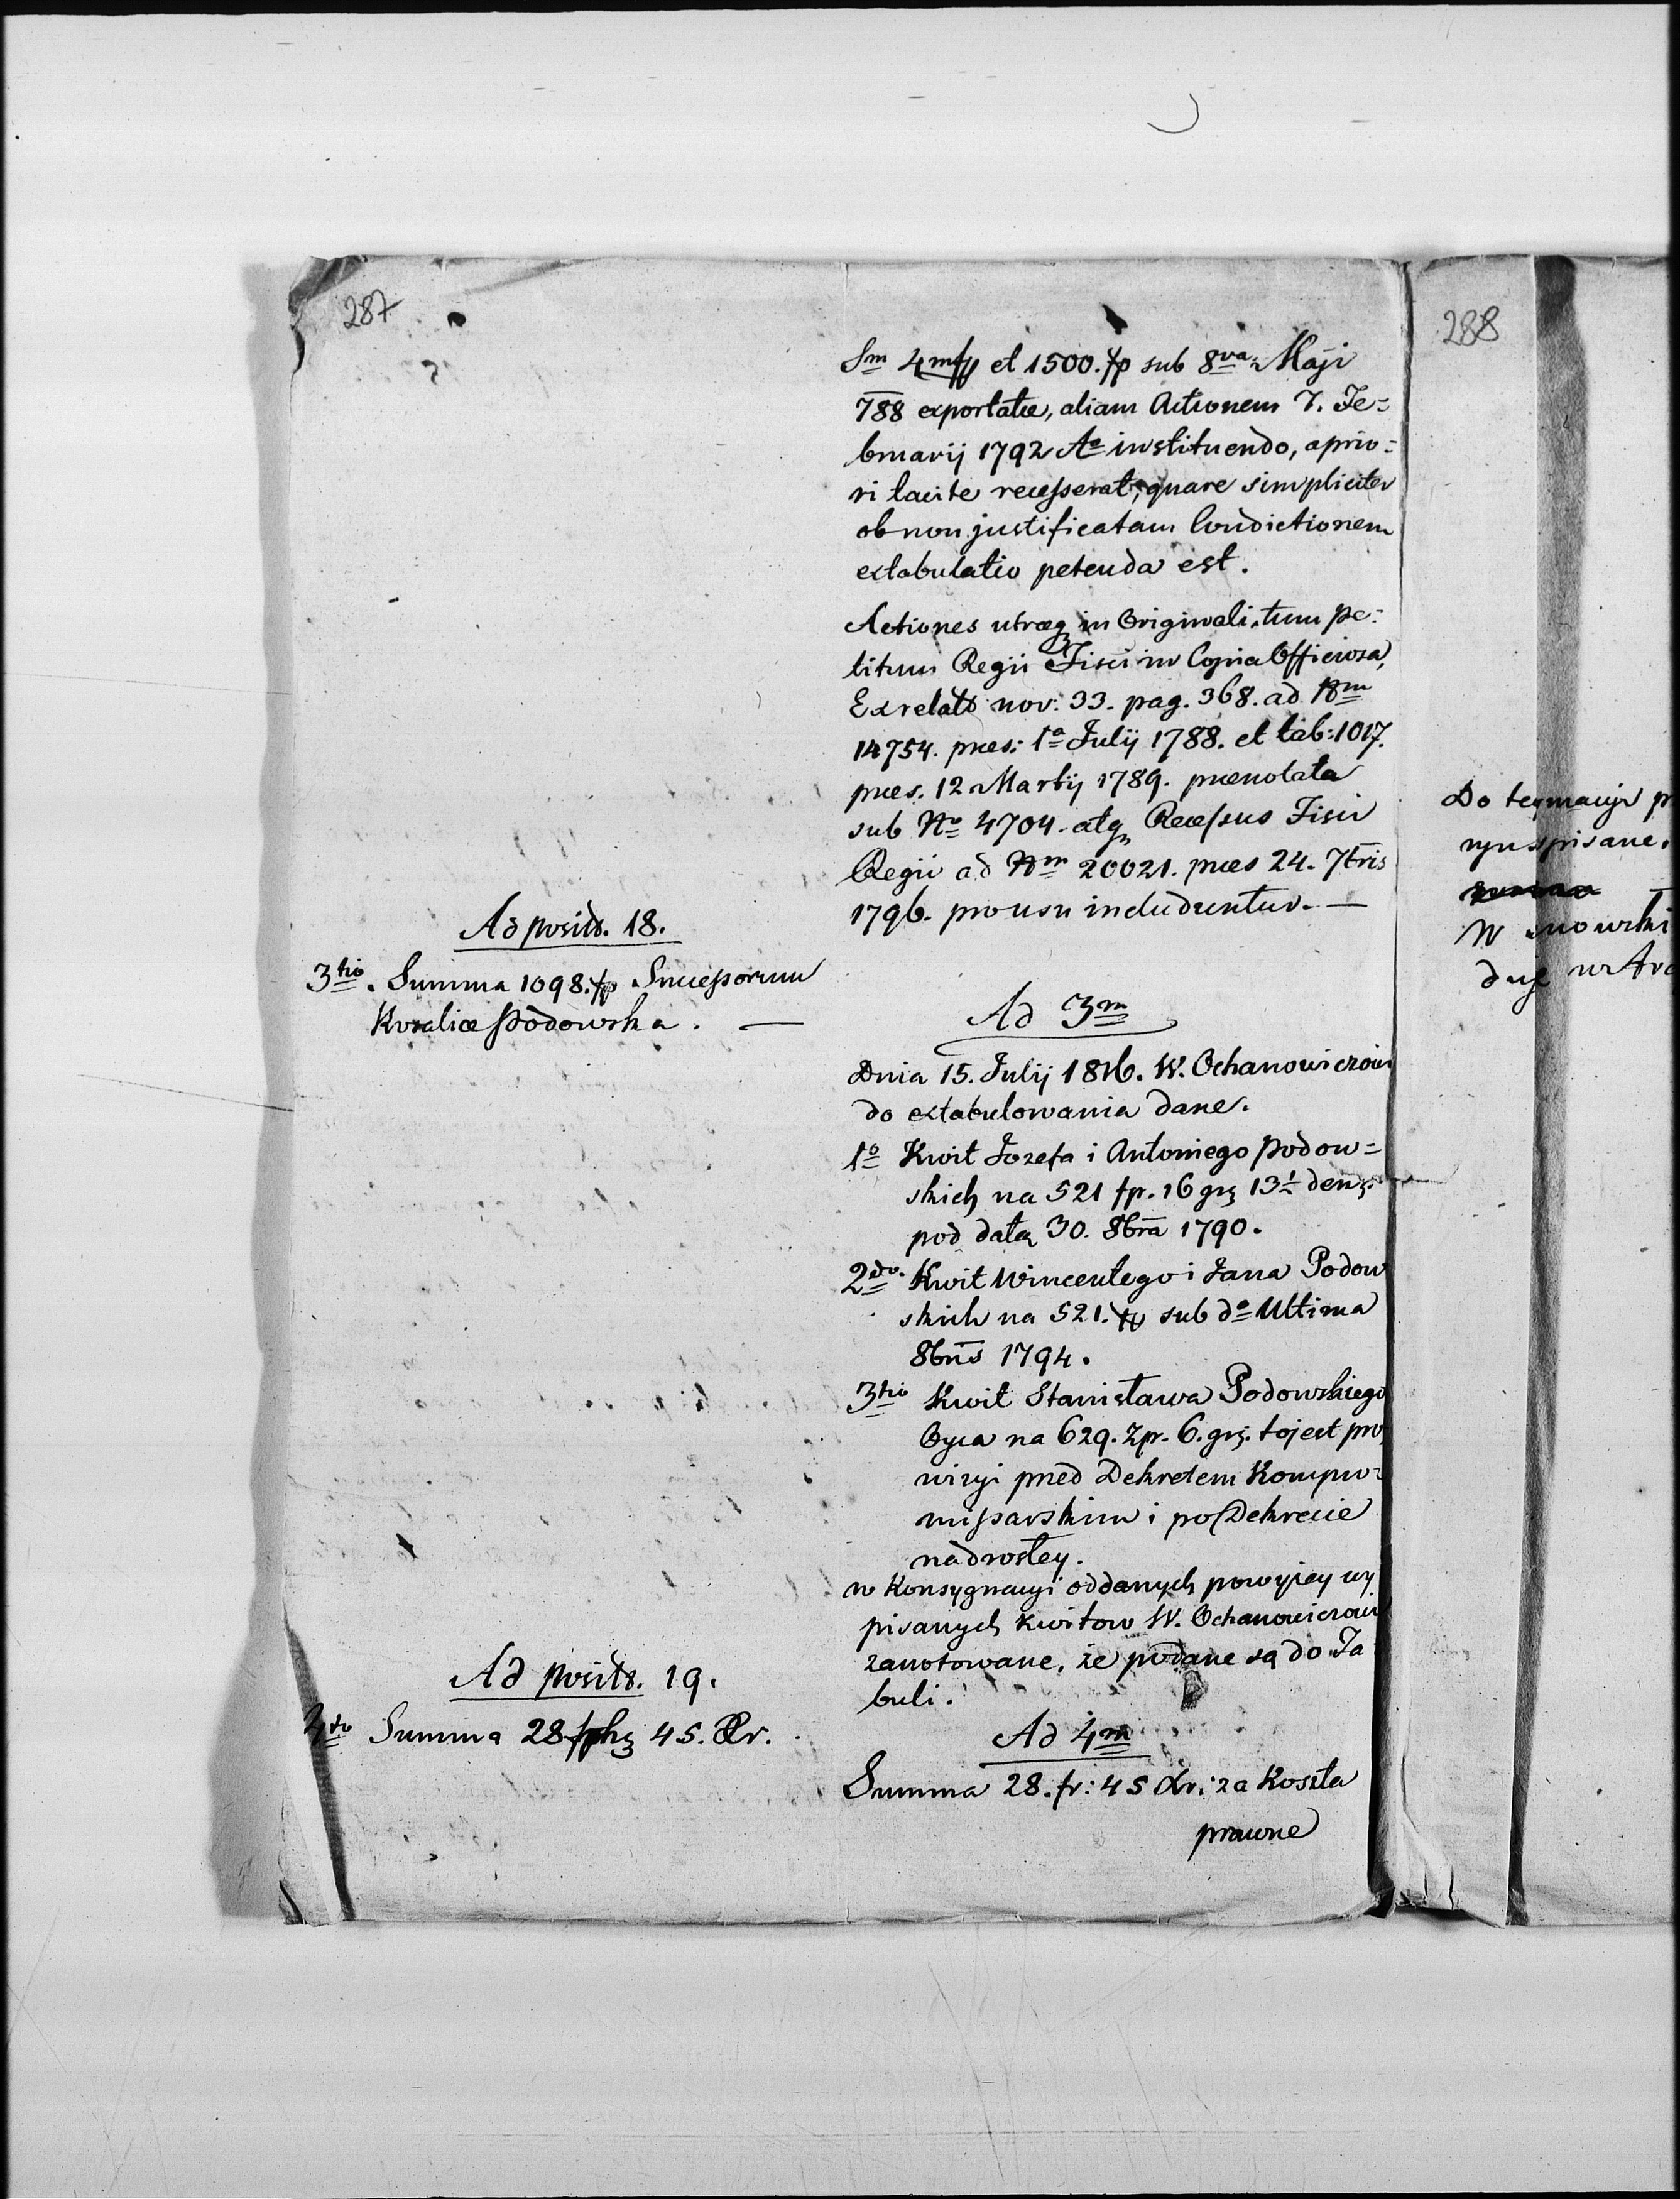 287
Sm 4m et 1500. fp sub 8va Maji
788 exportatæ, aliam Actionem 7. Fe=
bruarij 1792 Ao instituendo, aprio=
ri tacite recesserat, quare simpliciter
ob non justificatam Condictionem
extabulatio petenda est.
Actiones utraeq in Originali, tum pe=
titum Regii Fisci in Copia Officiosa,
Ex relato nov: 33. pag. 368. ad Nm
14754. praes: 1a Julij 1788. et tab: 1017.
praes. 12 Martij 1789. praenotata
sub No 4704. atq Recessus Fisci
Regii ad Nm 20021. praes 24. 7bris
1796. pro usu includuntur. —
Ad posit. 18.
3tio. Summa 1098. fp Successorum
Rozaliæ Podowska. —
Ad 3m
Dnia 15. Julij 1816. W. Ochanowiczowi
do extabulowania dane.
1o Kwit Jozefa i Antoniego Podow=
skich na 521 fp. 16 grz 13½ den.
pod datą 30. 8bra 1790.
2do. Kwit Wincentego i Jana Podow
skich na 521. fp sub do Ultima
8bris 1794.
3tio Kwit Stanisława Podowskiego
Oyca na 629. Zpr. 6. grz. tojest pro
wizyi przed Dekretem Kompro=
missarskim i po Dekrecie
nadrosłey.
w Konsygnacyi oddanych powyżey wy
pisanych kwitow W. Ochanowiczowi
zanotowane, że podane są do Ta
buli.
Ad posit. 19.
4to Summa 28 45. Xr.
Ad 4m
Summa 28. fr: 45 Xr: za Koszta
prawne
288
Do
spisane.
W